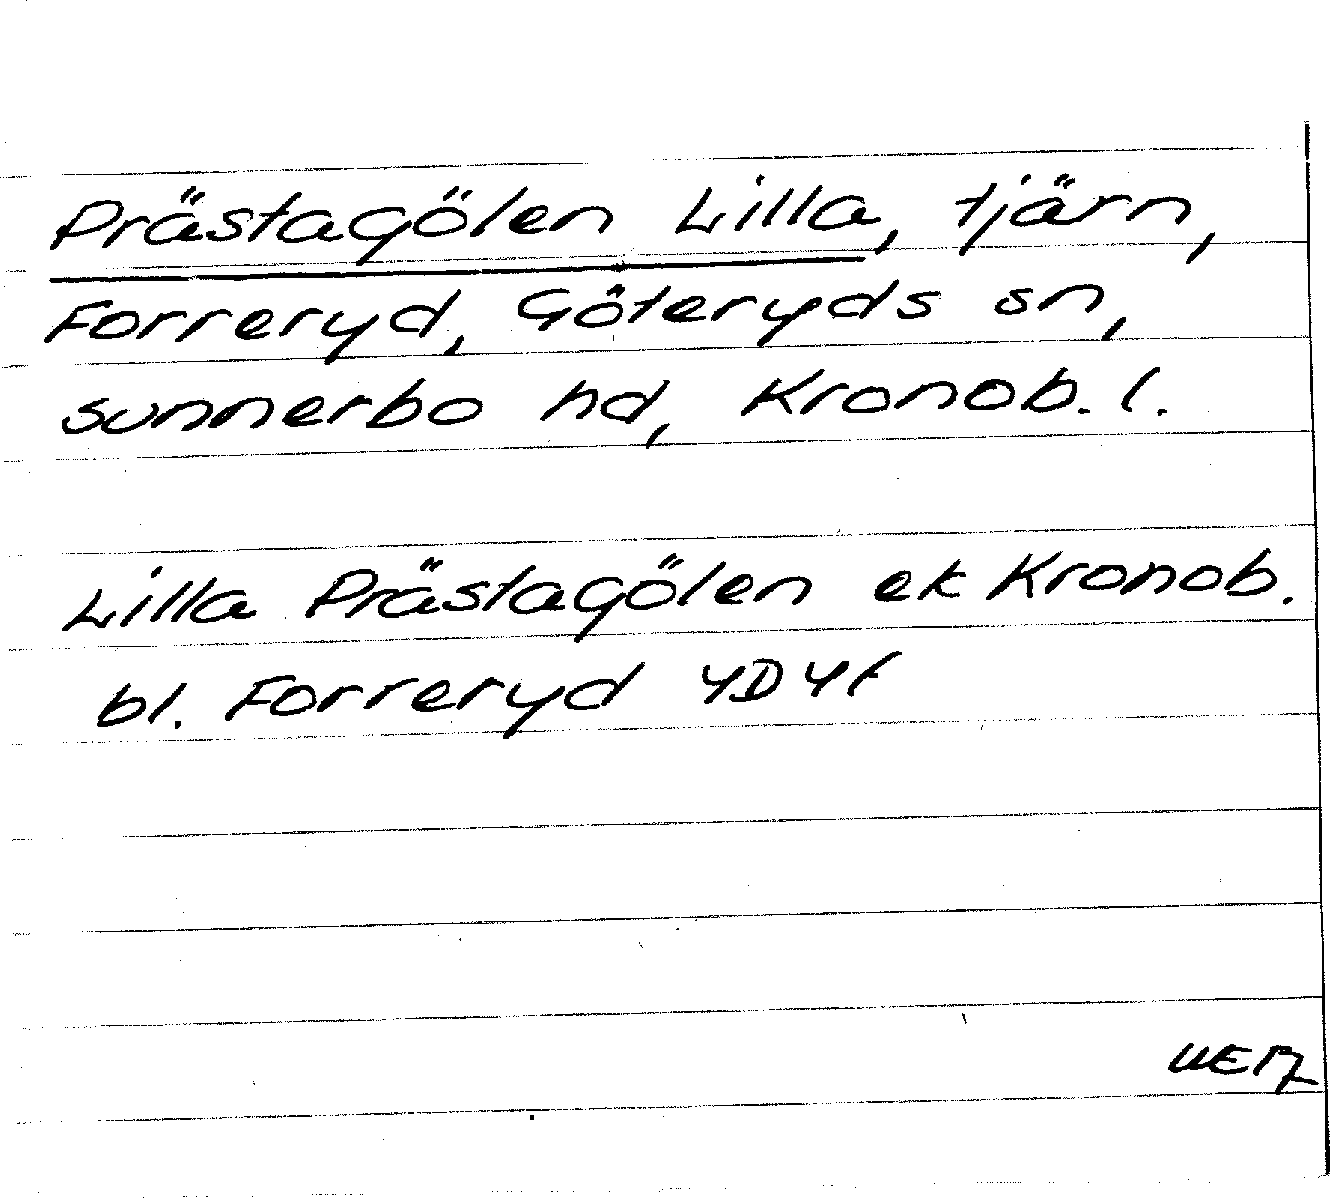 Prästagölen Lilla, tjärn,
Forreryd, Göteryds sn,
Sunnerbo hd, Kronob. l.
Lilla Prästagölen ek Kronob.
bl. Forreryd 4D4f